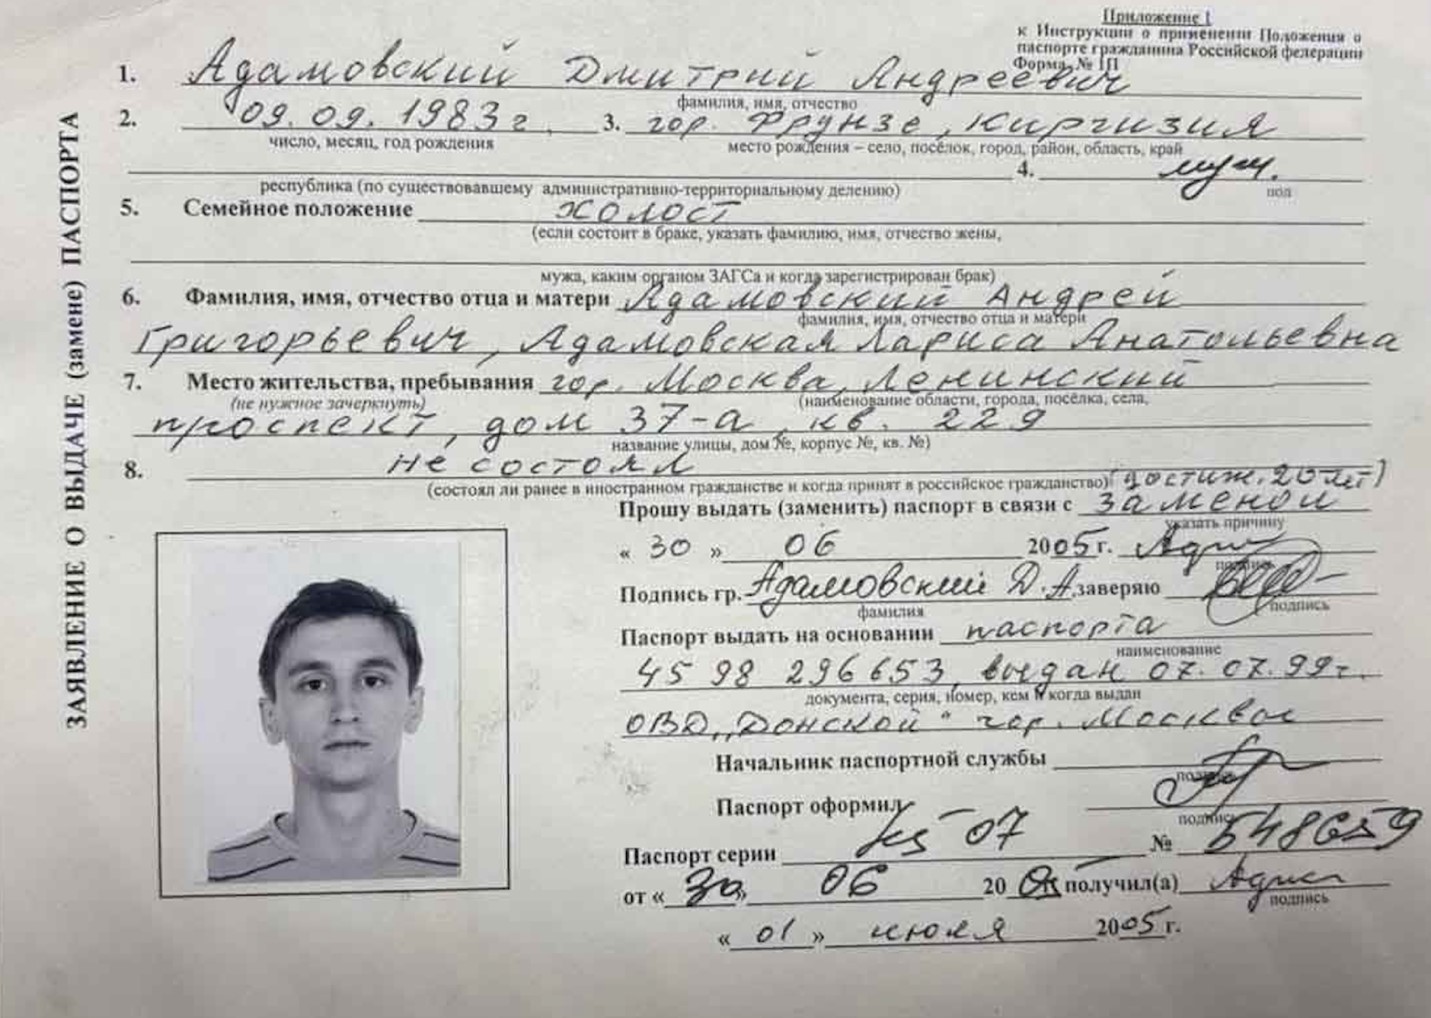 Приложение 1
к Инструкции о применении Положения о
паспорте гражданина Российской федерации
Форма № 1П
ЗАЯВЛЕНИЕ О ВЫДАЧЕ (замене) ПАСПОРТА
1. Адамовский Дмитрий Андреевич
фамилия, имя, отчество
2. 09.09.1983 г. 3. гор. Фрунзе, Киргизия
число, месяц, год рождения место рождения – село, посёлок, город, район, область, край
4. муж.
республика (по существовавшему административно-территориальному делению) пол
5. Семейное положение холост
(если состоит в браке, указать фамилию, имя, отчество жены,
мужа, каким органом ЗАГСа и когда зарегистрирован брак)
6. Фамилия, имя, отчество отца и матери Адамовский Андрей
фамилия, имя, отчество отца и матери
Григорьевич, Адамовская Лариса Анатольевна
7. Место жительства, пребывания гор. Москва, Ленинский
(не нужное зачеркнуть) (наименование области, города, посёлка, села,
проспект, дом 37-а, кв. 229
название улицы, дом №, корпус №, кв. №)
8. не состоял
(состоял ли ранее в иностранном гражданстве и когда принят в российское гражданство) (достиж. 20 лет)
Прошу выдать (заменить) паспорт в связи с заменой
указать причину
« 30 » 06 2005 г.
подпись
Подпись гр. Адамовский Д.А. заверяю
фамилия подпись
Паспорт выдать на основании паспорта
наименование
45 98 296653, выдан 07.07.99г.
документа, серия, номер, кем и когда выдан
ОВД „Донской“ гор. Москвы
Начальник паспортной службы
подпись
Паспорт оформил
подпись
Паспорт серии 45 07 № 548659
от « 30 » 06 20 получил(а)
подпись
« 01 » июля 2005 г.